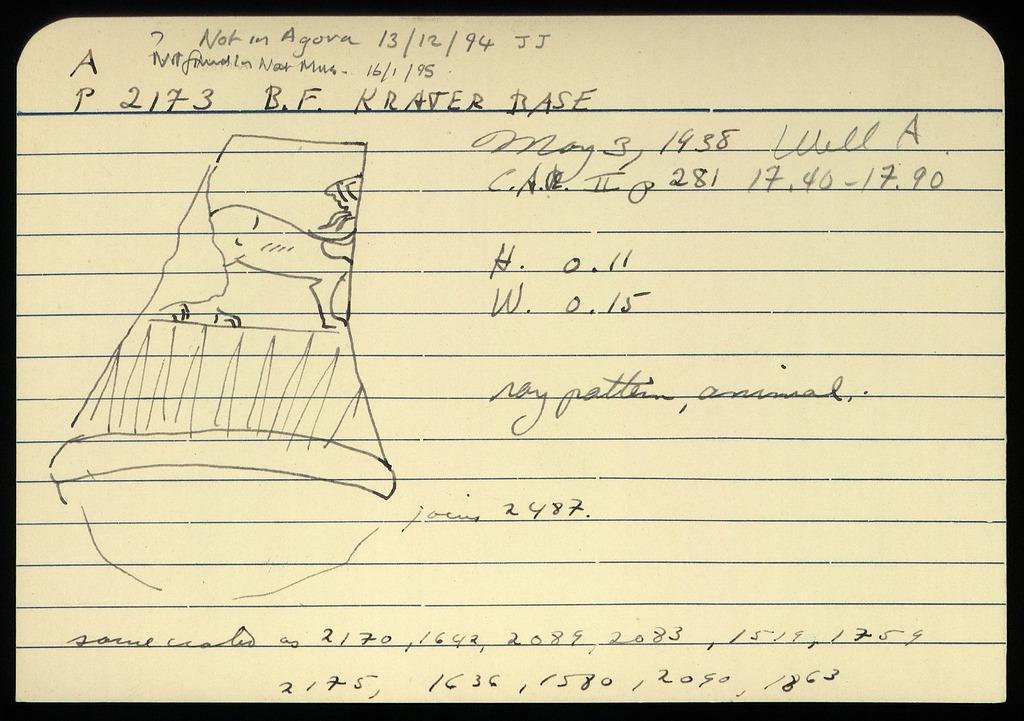 ? Not in Agora 13/12/94 JJ
A Not found in Nat Mus. 16/1/95
P 2173 B.F. KRATER BASE
May 3, 1938 Well A
C.A.R. II p 281 17.40-17.90
H. 0.11
W. 0.15
ray pattern, animal.
joins 2487.
same as 2170, 1642, 2089, 2083, 1519, 1759
2175, 1636, 1580, 2090, 1863